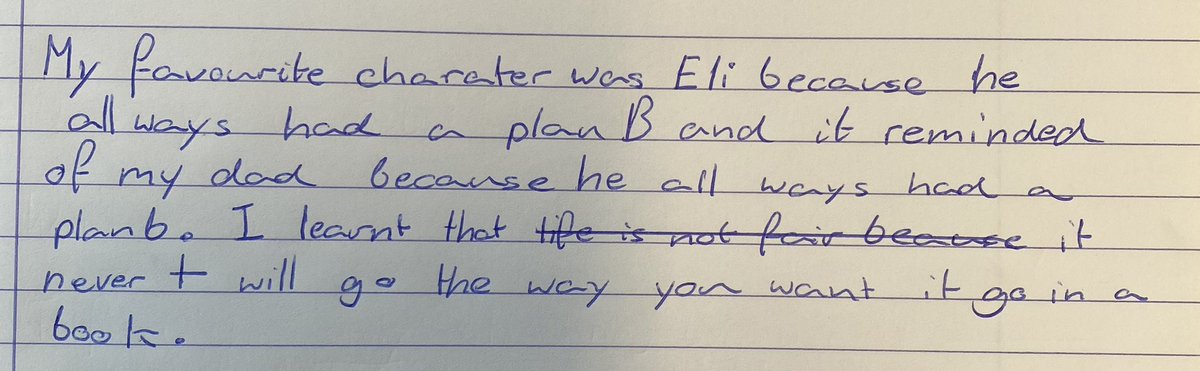 My favourite charater was Eli because he
all ways had a plan B and it reminded
of my dad because he all ways had a
plan b. I learnt that life is not fair because it
never t will go the way you want it go in a
book.